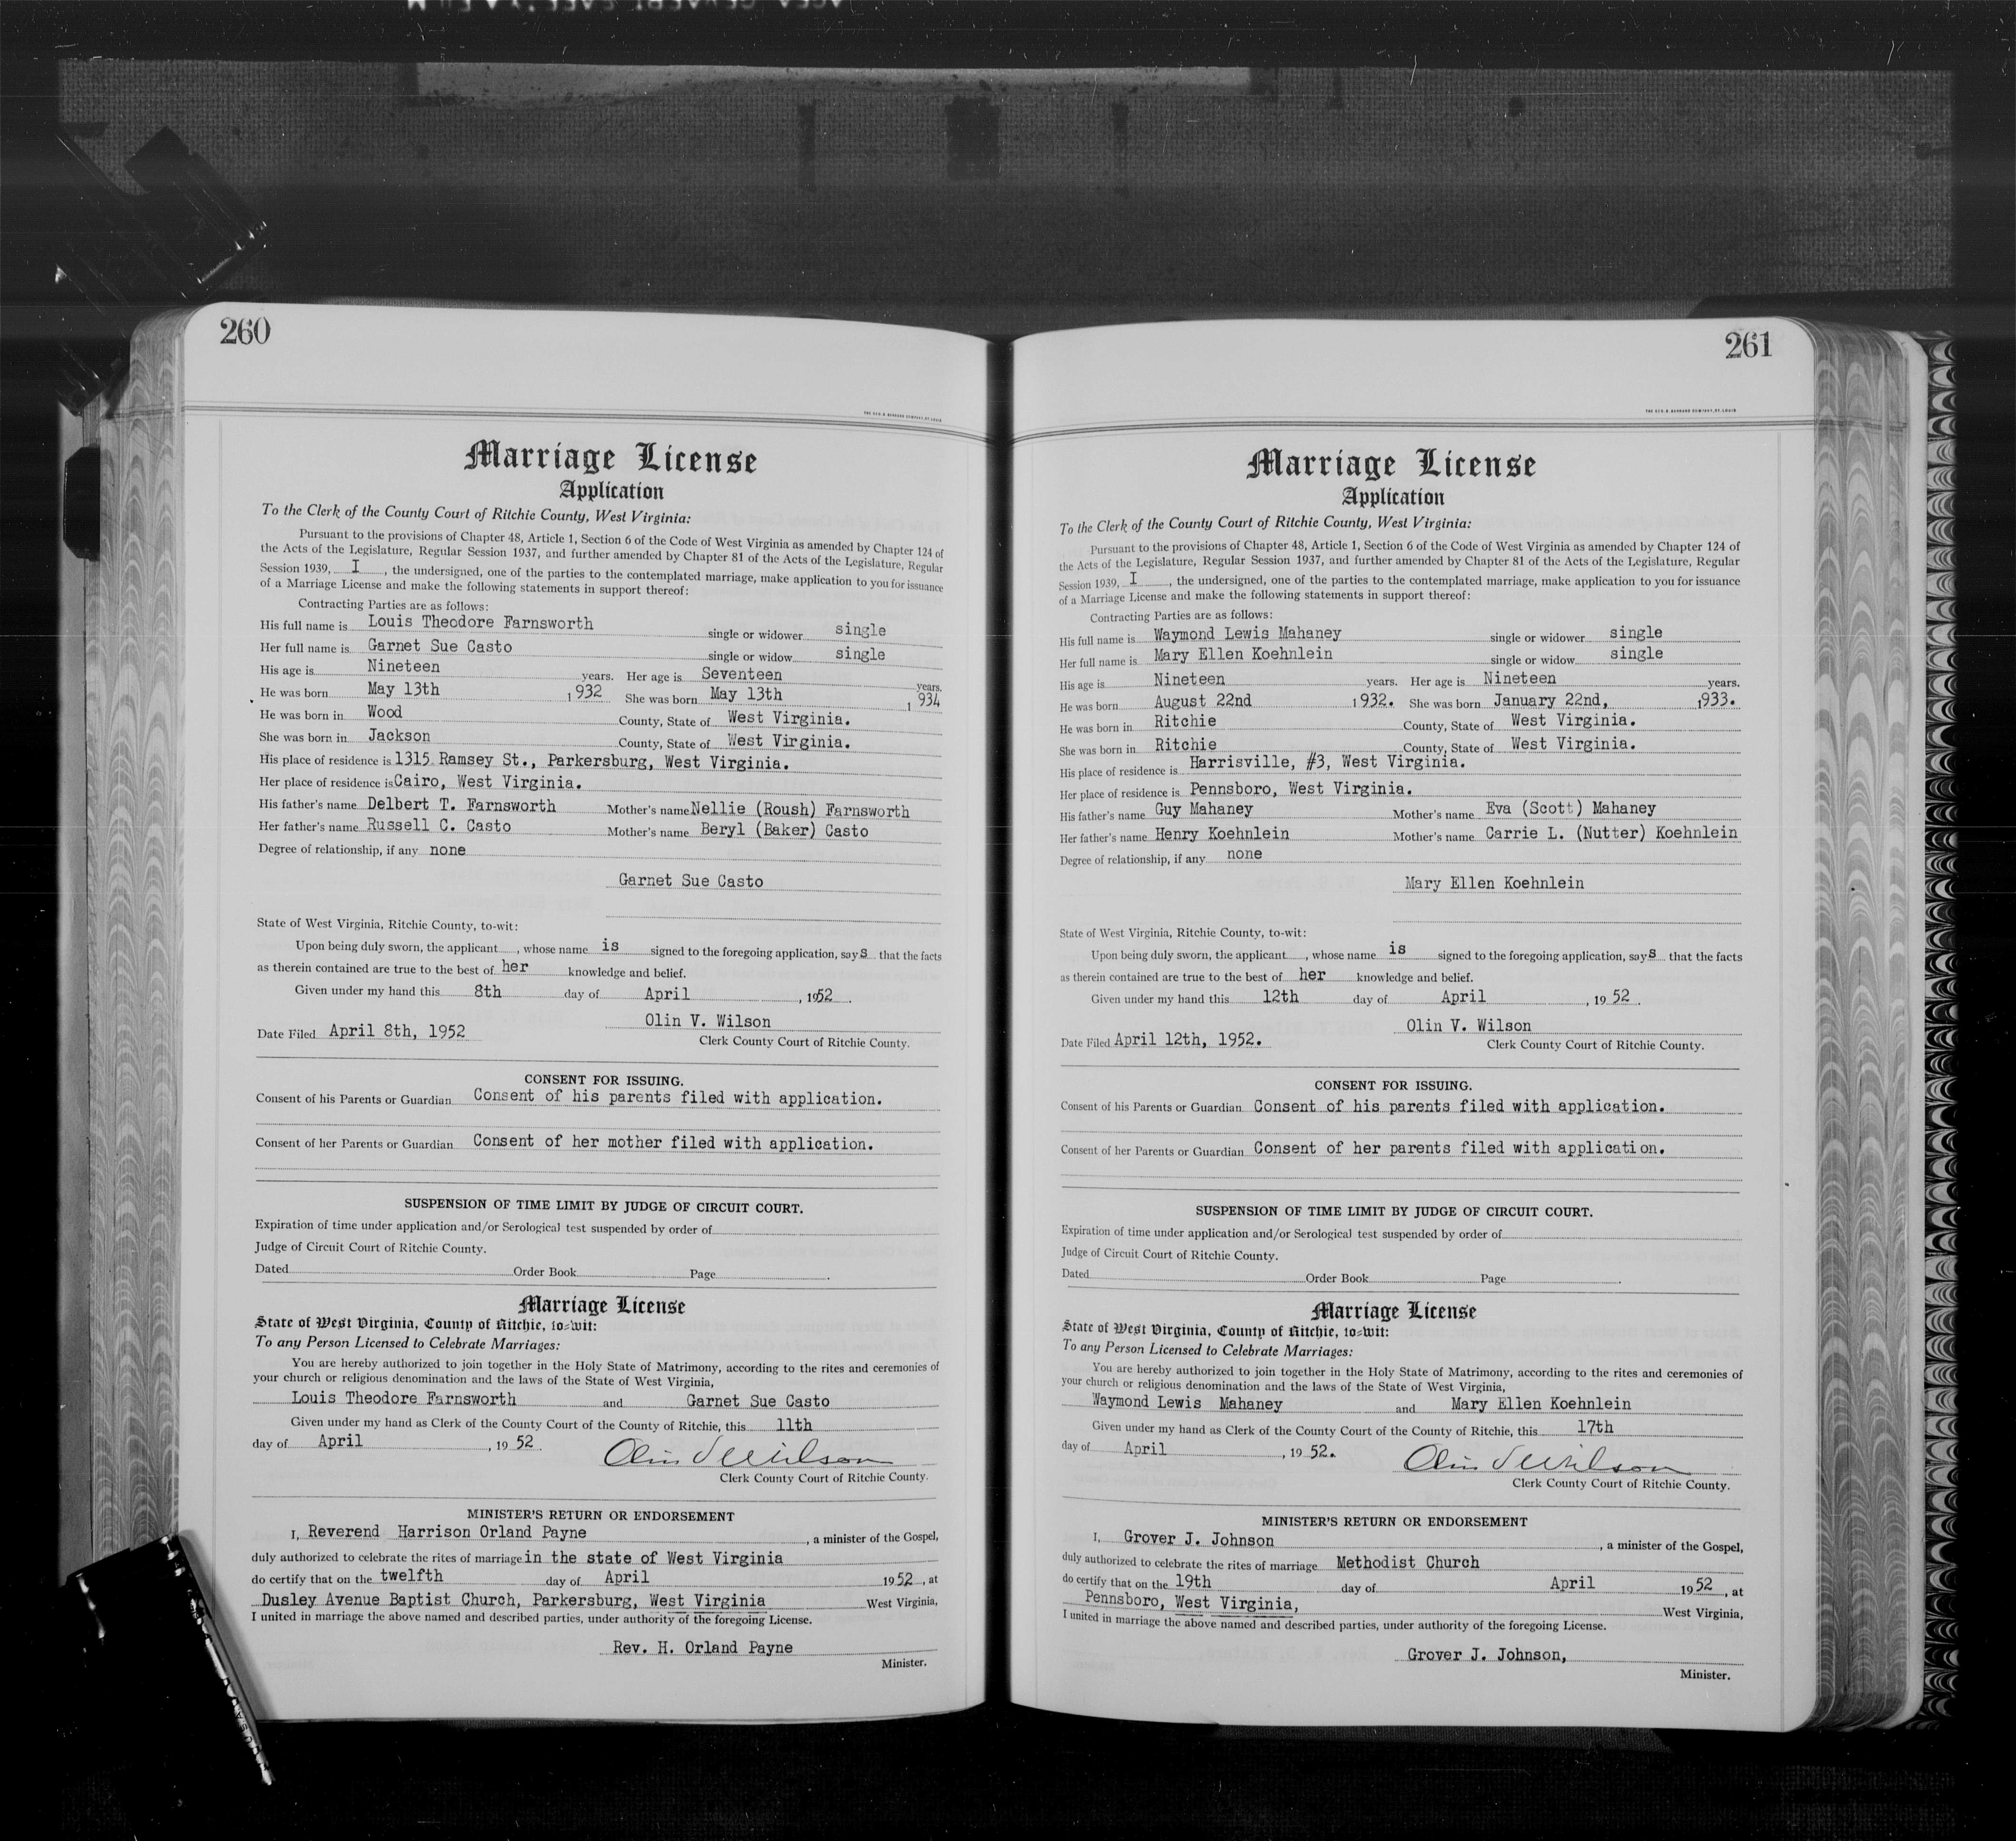 260
THE GEO. D. BARNARD COMPANY, ST. LOUIS
Marriage License
Application
To the Clerk of the County Court of Ritchie County, West Virginia:
Pursuant to the provisions of Chapter 48, Article 1, Section 6 of the Code of West Virginia as amended by Chapter 124 of
the Acts of the Legislature, Regular Session 1937, and further amended by Chapter 81 of the Acts of the Legislature, Regular
Session 1939, I, the undersigned, one of the parties to the contemplated marriage, make application to you for issuance
of a Marriage License and make the following statements in support thereof:
Contracting Parties are as follows:
His full name is Louis Theodore Farnsworth single or widower single
Her full name is Garnet Sue Casto single or widow single
His age is Nineteen years. Her age is Seventeen years.
He was born May 13th 1932 She was born May 13th 1934
He was born in Wood County, State of West Virginia.
She was born in Jackson County, State of West Virginia.
His place of residence is 1315 Ramsey St., Parkersburg, West Virginia.
Her place of residence is Cairo, West Virginia.
His father's name Delbert T. Farnsworth Mother's name Nellie (Roush) Farnsworth
Her father's name Russell C. Casto Mother's name Beryl (Baker) Casto
Degree of relationship, if any none
Garnet Sue Casto
State of West Virginia, Ritchie County, to-wit:
Upon being duly sworn, the applicant , whose name is signed to the foregoing application, says that the facts
as therein contained are true to the best of her knowledge and belief.
Given under my hand this 8th day of April , 1952 .
Olin V. Wilson
Date Filed April 8th, 1952 Clerk County Court of Ritchie County.
CONSENT FOR ISSUING.
Consent of his Parents or Guardian Consent of his parents filed with application.
Consent of her Parents or Guardian Consent of her mother filed with application.
SUSPENSION OF TIME LIMIT BY JUDGE OF CIRCUIT COURT.
Expiration of time under application and/or Serological test suspended by order of
Judge of Circuit Court of Ritchie County.
Dated Order Book Page .
Marriage License
State of West Virginia, County of Ritchie, to-wit:
To any Person Licensed to Celebrate Marriages:
You are hereby authorized to join together in the Holy State of Matrimony, according to the rites and ceremonies of
your church or religious denomination and the laws of the State of West Virginia,
Louis Theodore Farnsworth and Garnet Sue Casto
Given under my hand as Clerk of the County Court of the County of Ritchie, this 11th
day of April , 19 52 . Olin V Wilson
Clerk County Court of Ritchie County.
MINISTER'S RETURN OR ENDORSEMENT
I, Reverend Harrison Orland Payne , a minister of the Gospel,
duly authorized to celebrate the rites of marriage in the state of West Virginia
do certify that on the twelfth day of April 1952 , at
Dusley Avenue Baptist Church, Parkersburg, West Virginia West Virginia,
I united in marriage the above named and described parties, under authority of the foregoing License.
Rev. H. Orland Payne
Minister.
261
THE GEO. D. BARNARD COMPANY, ST. LOUIS
Marriage License
Application
To the Clerk of the County Court of Ritchie County, West Virginia:
Pursuant to the provisions of Chapter 48, Article 1, Section 6 of the Code of West Virginia as amended by Chapter 124 of
the Acts of the Legislature, Regular Session 1937, and further amended by Chapter 81 of the Acts of the Legislature, Regular
Session 1939, I , the undersigned, one of the parties to the contemplated marriage, make application to you for issuance
of a Marriage License and make the following statements in support thereof:
Contracting Parties are as follows:
His full name is Waymond Lewis Mahaney single or widower single
Her full name is Mary Ellen Koehnlein single or widow single
His age is Nineteen years. Her age is Nineteen years.
He was born August 22nd 1932. She was born January 22nd, 1933.
He was born in Ritchie County, State of West Virginia.
She was born in Ritchie County, State of West Virginia.
His place of residence is Harrisville, #3, West Virginia.
Her place of residence is Pennsboro, West Virginia.
His father's name Guy Mahaney Mother's name Eva (Scott) Mahaney
Her father's name Henry Koehnlein Mother's name Carrie L. (Nutter) Koehnlein
Degree of relationship, if any none
Mary Ellen Koehnlein
State of West Virginia, Ritchie County, to-wit:
Upon being duly sworn, the applicant , whose name is signed to the foregoing application, says that the facts
as therein contained are true to the best of her knowledge and belief.
Given under my hand this 12th day of April , 19 52 .
Olin V. Wilson
Date Filed April 12th, 1952. Clerk County Court of Ritchie County.
CONSENT FOR ISSUING.
Consent of his Parents or Guardian Consent of his parents filed with application.
Consent of her Parents or Guardian Consent of her parents filed with application.
SUSPENSION OF TIME LIMIT BY JUDGE OF CIRCUIT COURT.
Expiration of time under application and/or Serological test suspended by order of
Judge of Circuit Court of Ritchie County.
Dated Order Book Page .
Marriage License
State of West Virginia, County of Ritchie, to-wit:
To any Person Licensed to Celebrate Marriages:
You are hereby authorized to join together in the Holy State of Matrimony, according to the rites and ceremonies of
your church or religious denomination and the laws of the State of West Virginia,
Waymond Lewis Mahaney and Mary Ellen Koehnlein
Given under my hand as Clerk of the County Court of the County of Ritchie, this 17th
day of April , 19 52. Olin V Wilson
Clerk County Court of Ritchie County.
MINISTER'S RETURN OR ENDORSEMENT
I, Grover J. Johnson , a minister of the Gospel,
duly authorized to celebrate the rites of marriage Methodist Church
do certify that on the 19th day of April 19 52 , at
Pennsboro, West Virginia, West Virginia,
I united in marriage the above named and described parties, under authority of the foregoing License.
Grover J. Johnson,
Minister.